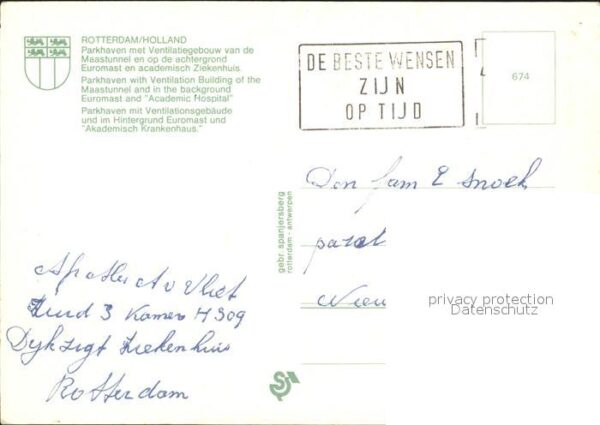 ROTTERDAM/HOLLAND
Parkhaven met Ventilatiegebouw van de
Maastunnel en op de achtergrond
Euromast en academisch Ziekenhuis.
Parkhaven with Ventilation Building of the
Maastunnel and in the background
Euromast and "Academic Hospital"
Parkhaven mit Ventilationsgebäude
und im Hintergrund Euromast und
"Akademisch Krankenhaus."
DE BESTE WENSEN
ZIJN
OP TIJD
674
gebr. spanjersberg
rotterdam - antwerpen
Den fam E Snoek
Nieu
privacy protection
Datenschutz
A v Vliet
Zuid 3 Kamer H 309
Dykzigt Ziekenhuis
Rotterdam